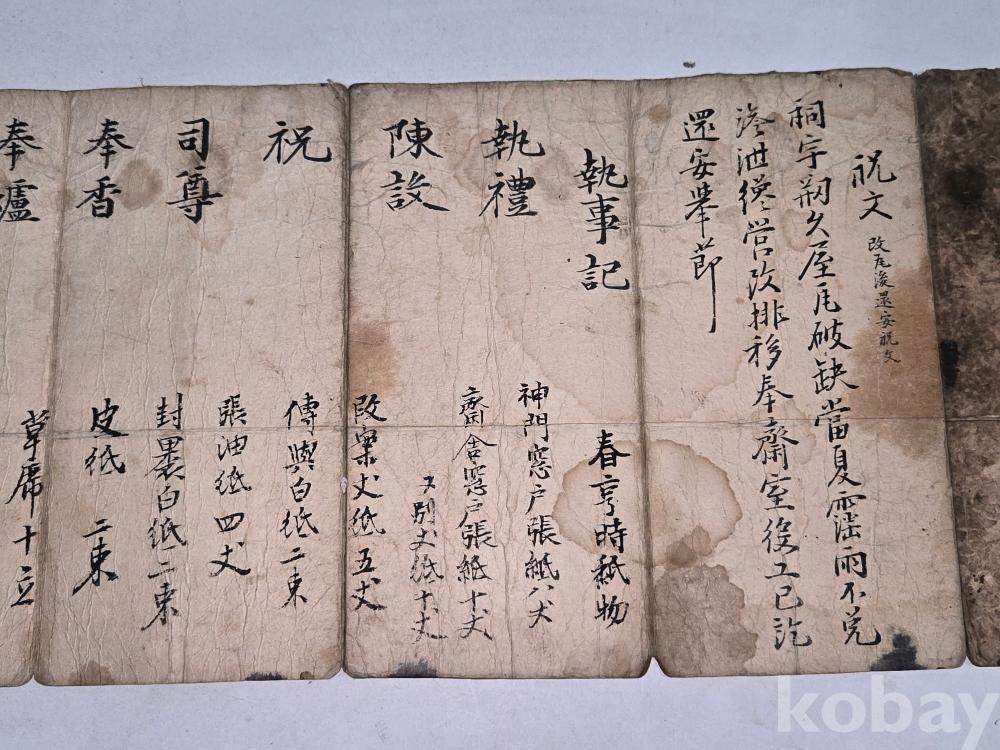 祝文 改瓦後還安祝文
祠宇刱久屋瓦破缺當夏霪雨不免
滲泄纔營改排移奉齋室役工已訖
還安擧節
執事記
春享時紙物
執禮
神門窓戶張紙八丈
齋舍窓戶張紙十丈
陳設
又別丈紙十丈
改 丈紙五丈
祝
傳與白紙二束
張油紙四丈
司尊
封裹白紙二束
奉香
皮紙 二束
奉爐
草席十立
kobay